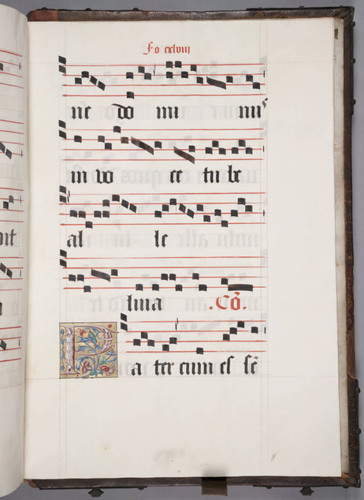 Fo cxlviij
ne do mi nuꝰ
in vo ce tu be
al le
luia .Cō.
Pater cum es sē